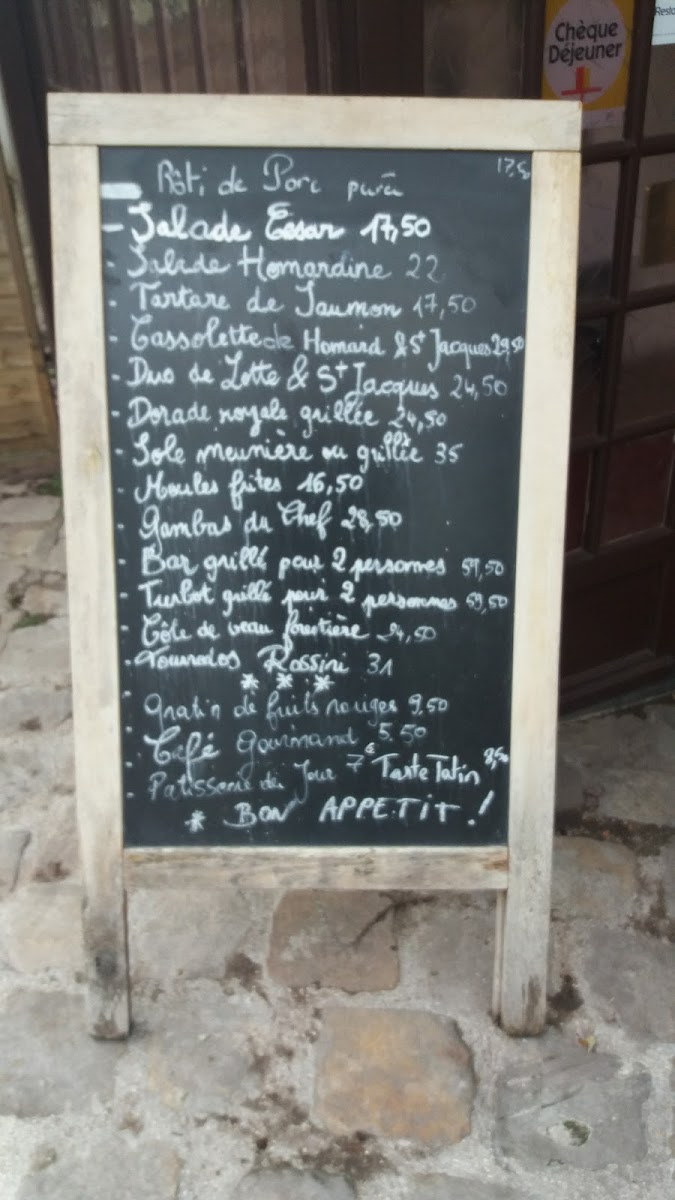 Chèque
Déjeuner
Resto
Rôti de Porc purée 17,5
- Salade César 17,50
- Salade Homardine 22
- Tartare de Saumon 17,50
- Cassolette de Homard & St Jacques 29,50
- Duo de Lotte & St Jacques 24,50
- Dorade royale grillée 24,50
- Sole meunière ou grillée 35
- Moules frites 16,50
- Gambas du Chef 28,50
- Bar grillé pour 2 personnes 59,50
- Turbot grillé pour 2 personnes 59,50
- Côte de veau forestière 24,50
- Tournedos Rossini 31
* * *
- Gratin de fruits rouges 9,50
- Café Gourmand 5,50
- Patisserie du Jour 7€ Tarte Tatin 8,50
* BON APPETIT !